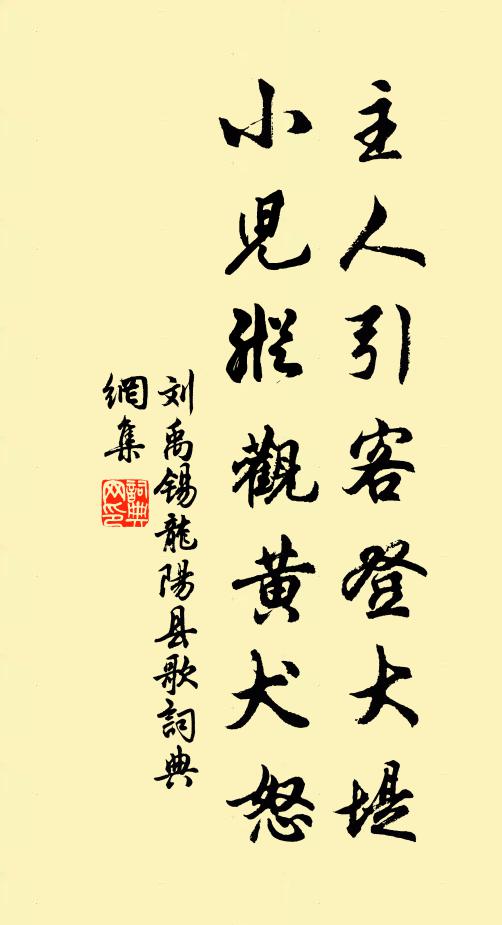 主人引客登大堤
小児縱觀黃犬怒
刘禹锡龍陽县歌詞典
網集
詞典
网印